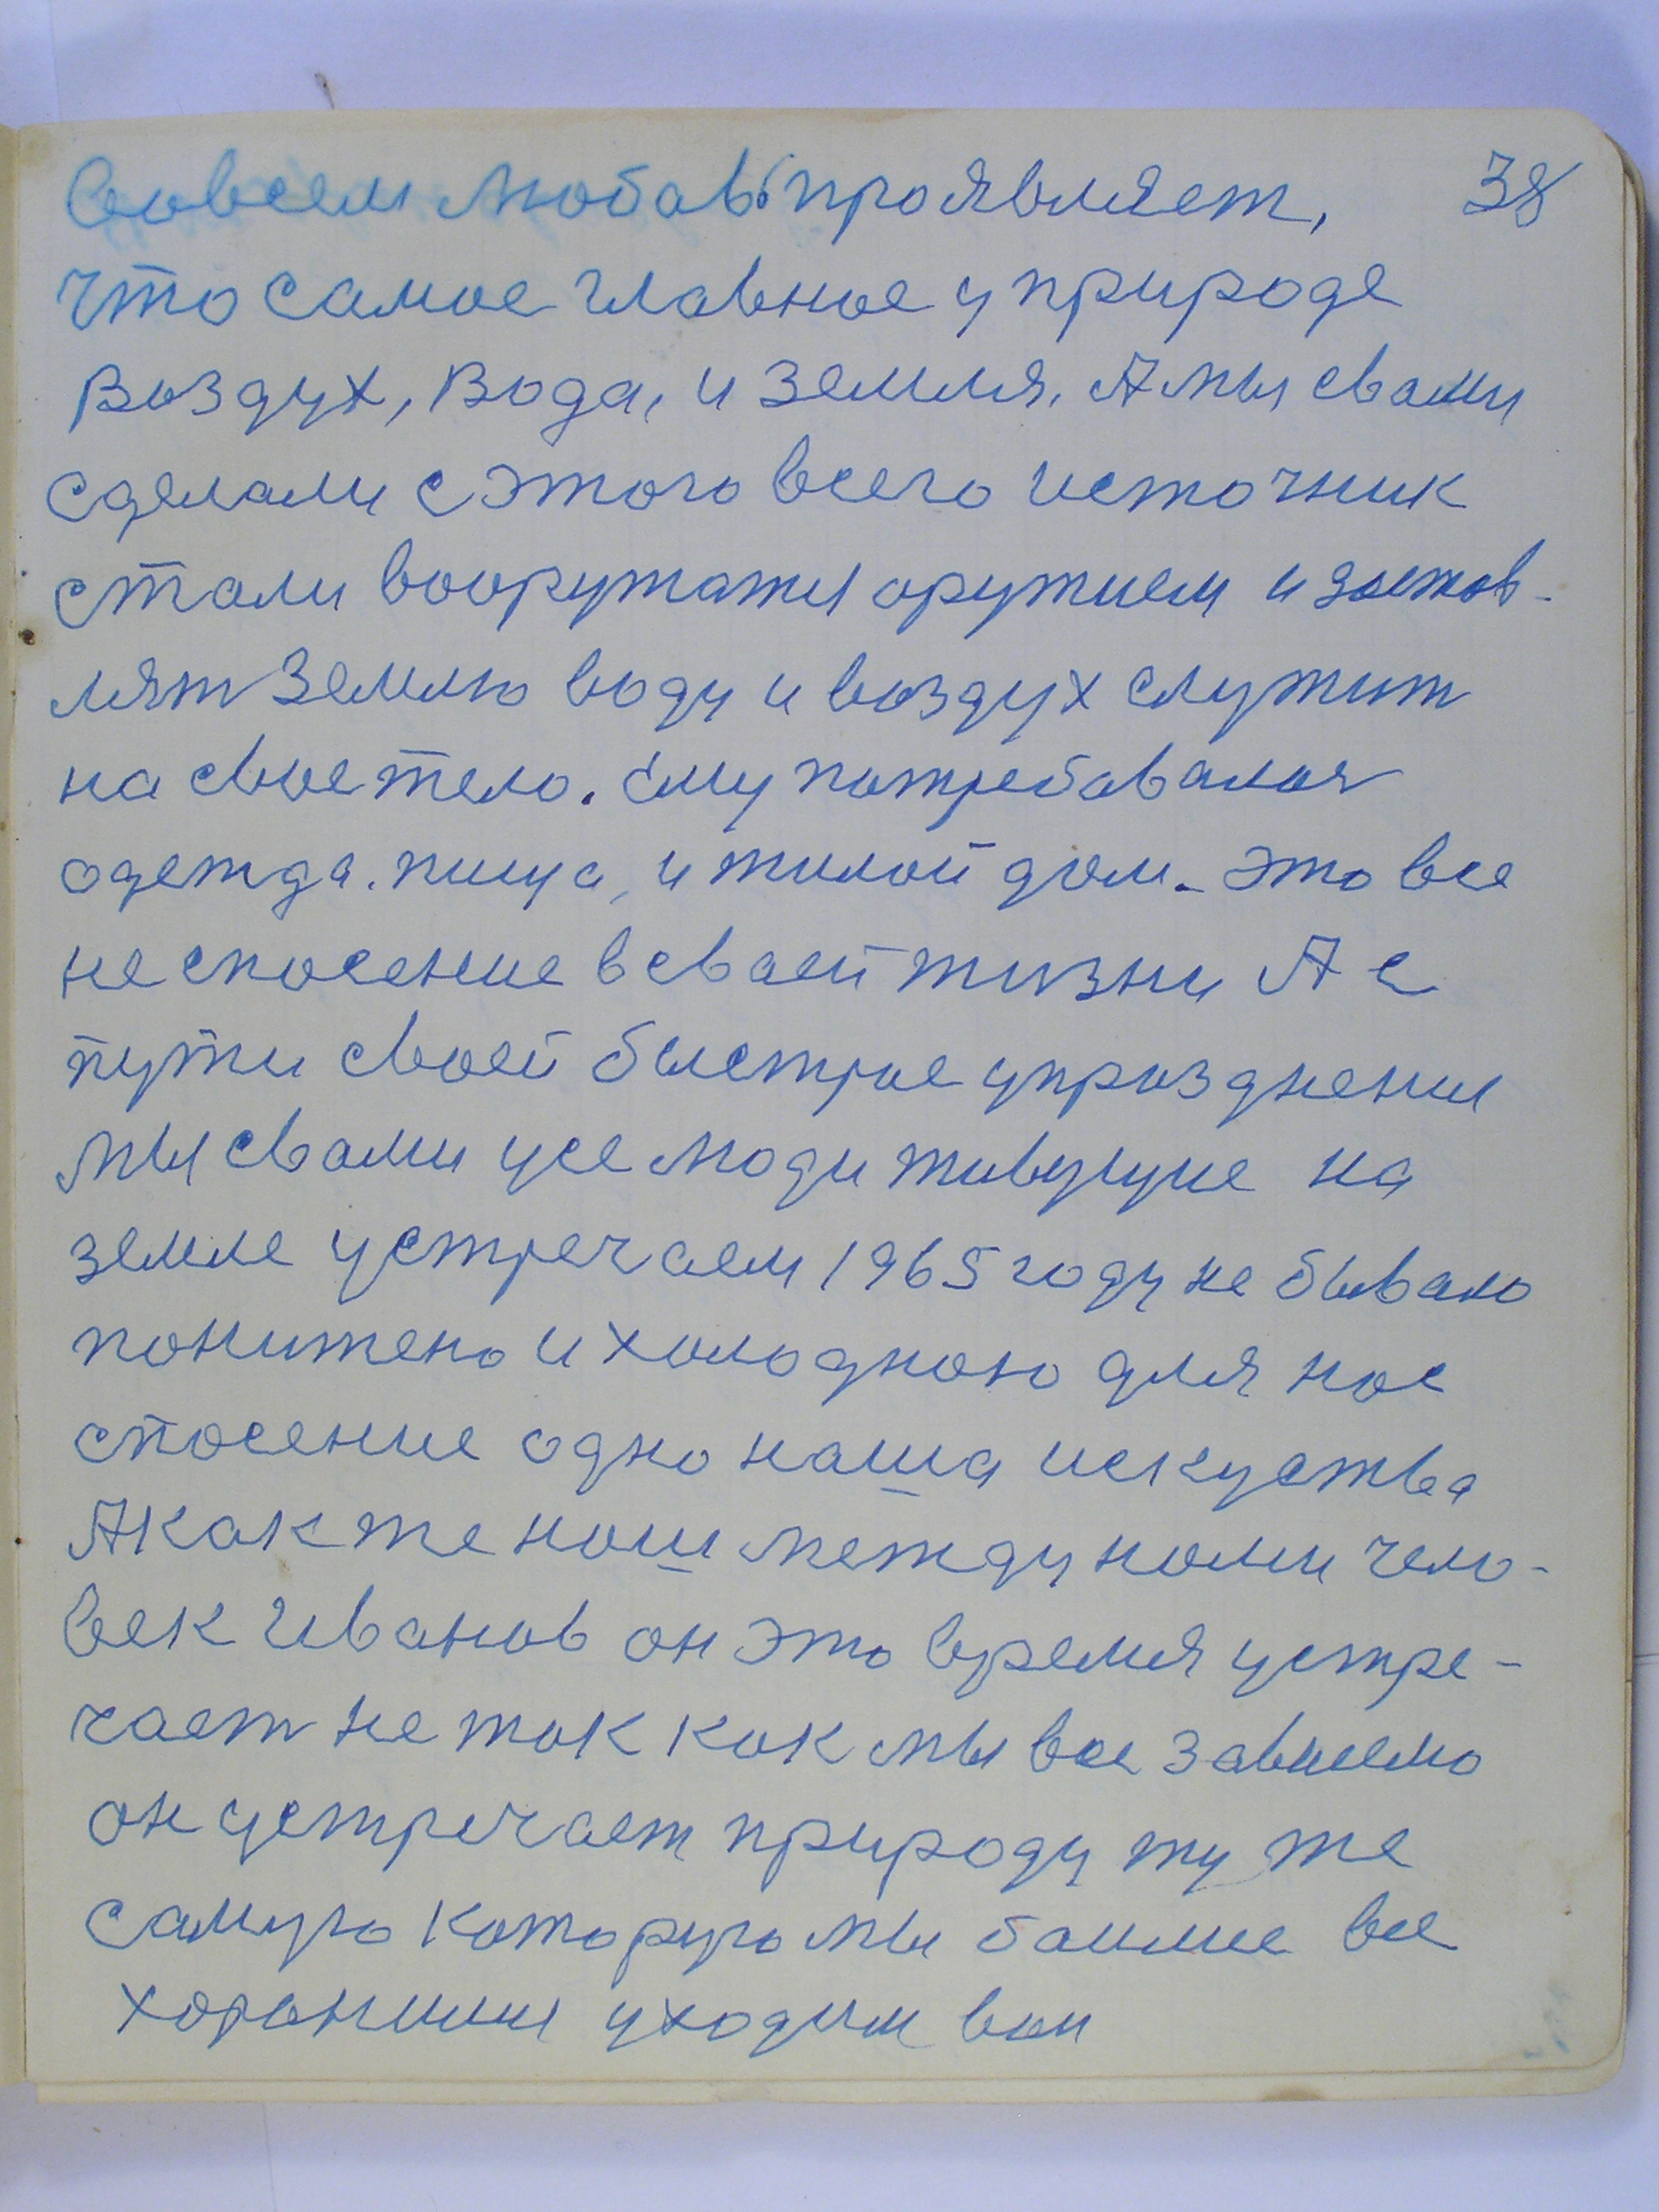 вовсем любавь проявляет, 38
что самое главное у природе
воздух, вода, и земля. А мы свами
сделали сэтого всего источник
стали вооружатжи оружием и застов-
лят землю воду и воздух служит
на своетело. ему потребавалоя
одежда. пища, и жилой дом. это все
не спосение в сваей жизни А с
пути своей быстрое упразднения
мы свами усе люди живущие на
земле устречаем 1965 году не бывало
понижено и холодною для нос
спосение одно наша искуства
А как же нош между номи чело-
век Иванов он это время устре-
чает не ток как мы все завиемо
он устречает природу ту же
самую которую мы баимее все
хоронимы уходим вон